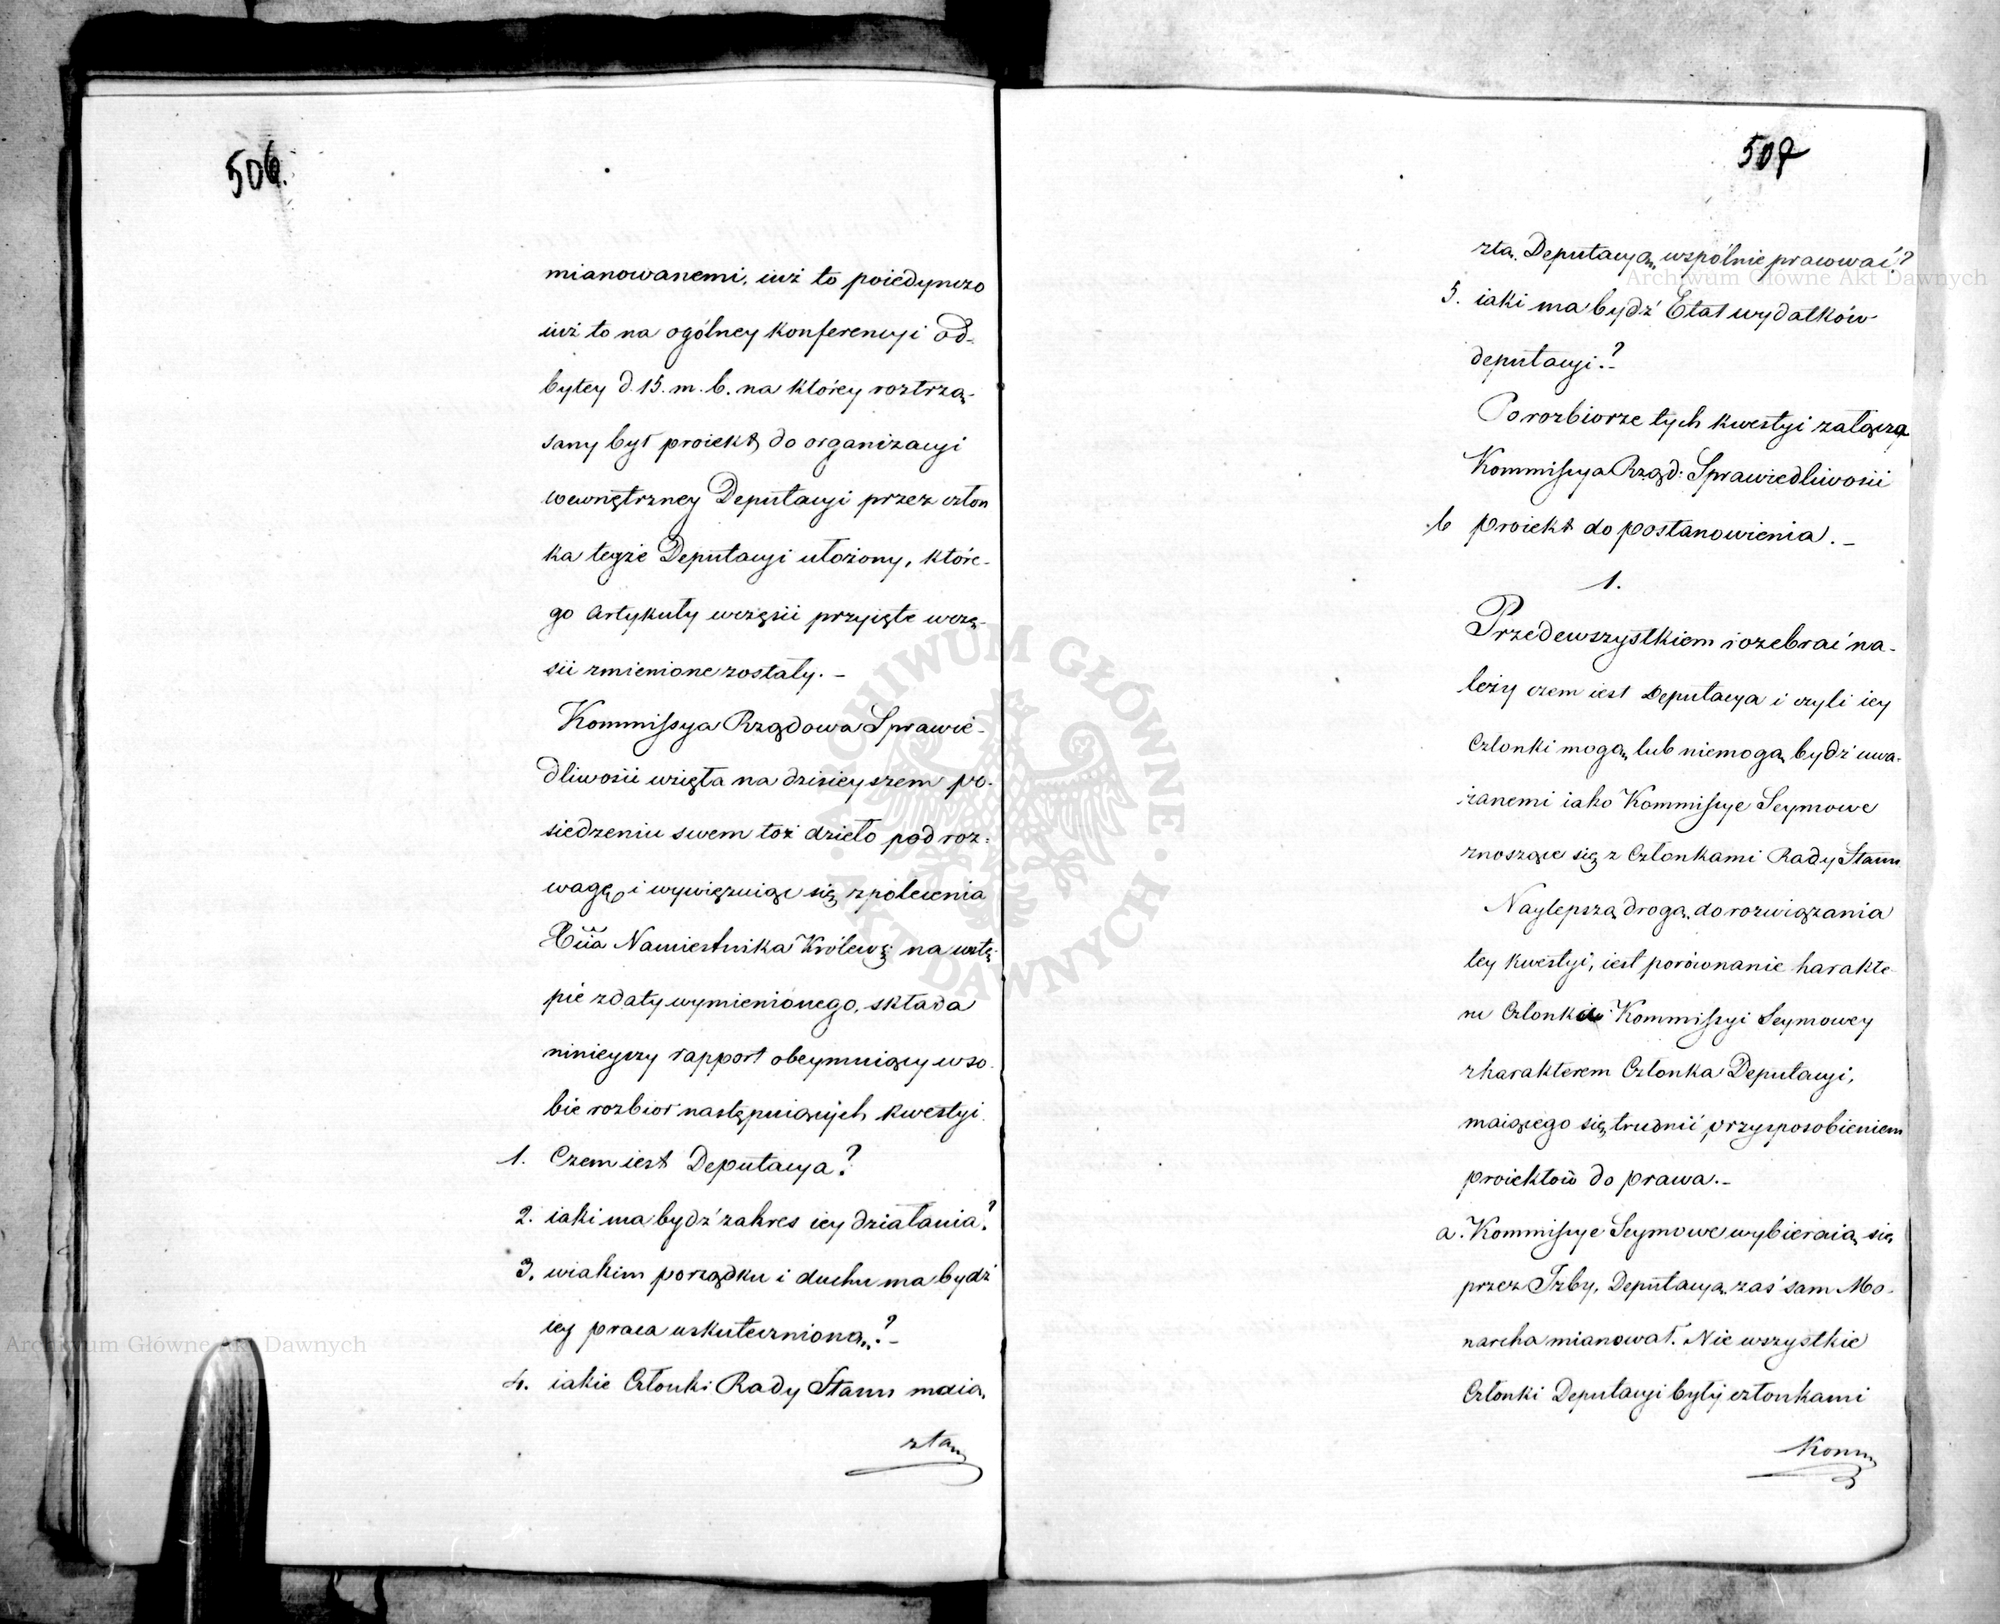 506.
mianowanemi, iuż to poiedynczo
iuż to na ogólney konferencyi od-
bytey d. 15. m. b. na którey roztrzą-
sany był proiekt do organizacyi
wewnętrzney Deputacyi przez człon
ka tegże Deputacyi ułożony, które-
go Artykuły wczęści przyięte wczę-
ści zmienione zostały. -
Kommissya Rządowa Sprawie-
dliwości wzięła na dzisieyszem po-
siedzeniu swem toż dzieło pod roz-
wagę, i wywięzuiąc się zpolecenia
Xcia Namiestnika Królewsg: na wstę-
pie zdaty wymienionego, składa
ninieyszy rapport obeymuiący wso-
bie rozbior następuiących kwestyi.
1. Czem iest Deputacya?
2. iaki ma bydź zakres iey działania?
3. wiakim porządku i duchu ma bydź
iey praca uskuteczniona,? -
4. iakie Członki Rady Stanu maią
ztą
507
ztą Deputacyą wspólnie pracować?
5. iaki ma bydź Etat wydatków
deputacyi? -
Po rozbiorze tych kwestyi załączą
Kommissya Rząd: Sprawiedliwości
b proiekt do postanowienia. -
1.
Przedewszystkiem rozebrać na-
leży czem iest Deputacya i czyli iey
Członki mogą lub niemogą bydź uwa-
żanemi iako Kommissye Seymowe
znoszące się z Członkami Rady Stanu
Naylepszą drogą do rozwiązania
tey kwestyi, iest porównanie harakte-
ru Członka Kommissyi Seymowey
zharakterem Członka Deputacyi,
maiącego się trudnić przysposobieniem
proiektów do prawa. -
a. Kommissye Seymowe wybieraią się
przez Izby, Deputacyą zaś sam Mo-
narcha mianował. Nie wszystkie
Członki Deputacyi były członkami
Komm
ARCHIWUM GŁÓWNE AKT DAWNYCH
Archiwum Główne Akt Dawnych
Archiwum Główne Akt Dawnych